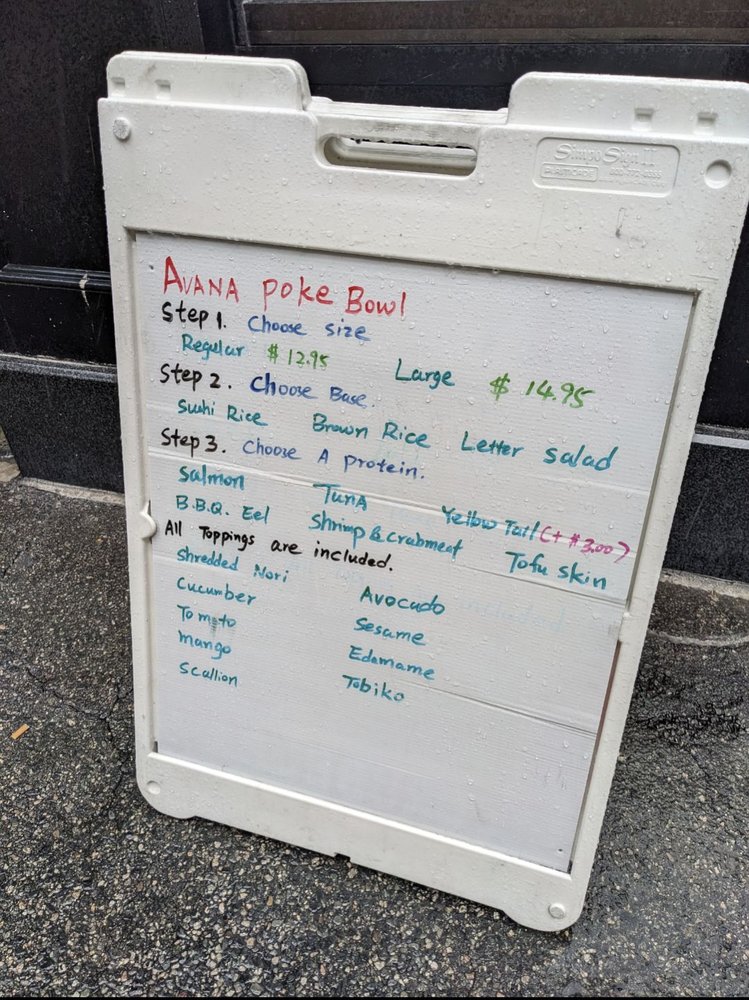 Simpo Sign II
AVANA poke Bowl
Step 1. Choose size
Regular $12.95 Large $14.95
Step 2. Choose Base.
Sushi Rice Brown Rice Letter salad
Step 3. Choose A protein.
Salmon Tuna Yellow Tail (+$3.00)
B.B.Q. Eel Shrimp & crabmeat Tofu skin
All Toppings are included.
Shredded Nori Avocado
Cucumber Sesame
Tomato Edamame
mango Tobiko
Scallion